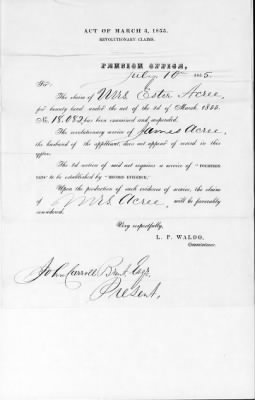 ACT OF MARCH 3, 1855.
REVOLUTIONARY CLAIMS.
PENSION OFFICE,
July 10th 1855.
Sir:
The claim of Mrs Ester Acree
for bounty land under the act of the 3d of March 1855
No. 18.082, has been examined and suspended.
The revolutionary service of James Acree,
the husband of the applicant, does not appear of record in this
office.
The 3d section of said act requires a service of "FOURTEEN
DAYS" to be established by "RECORD EVIDENCE."
Upon the production of such evidence of service, the claim
of Mrs. Acree, will be favorably
considered.
Very respectfully,
L. P. WALDO,
Commissioner.
John Carroll Brent Esqr.
Present.